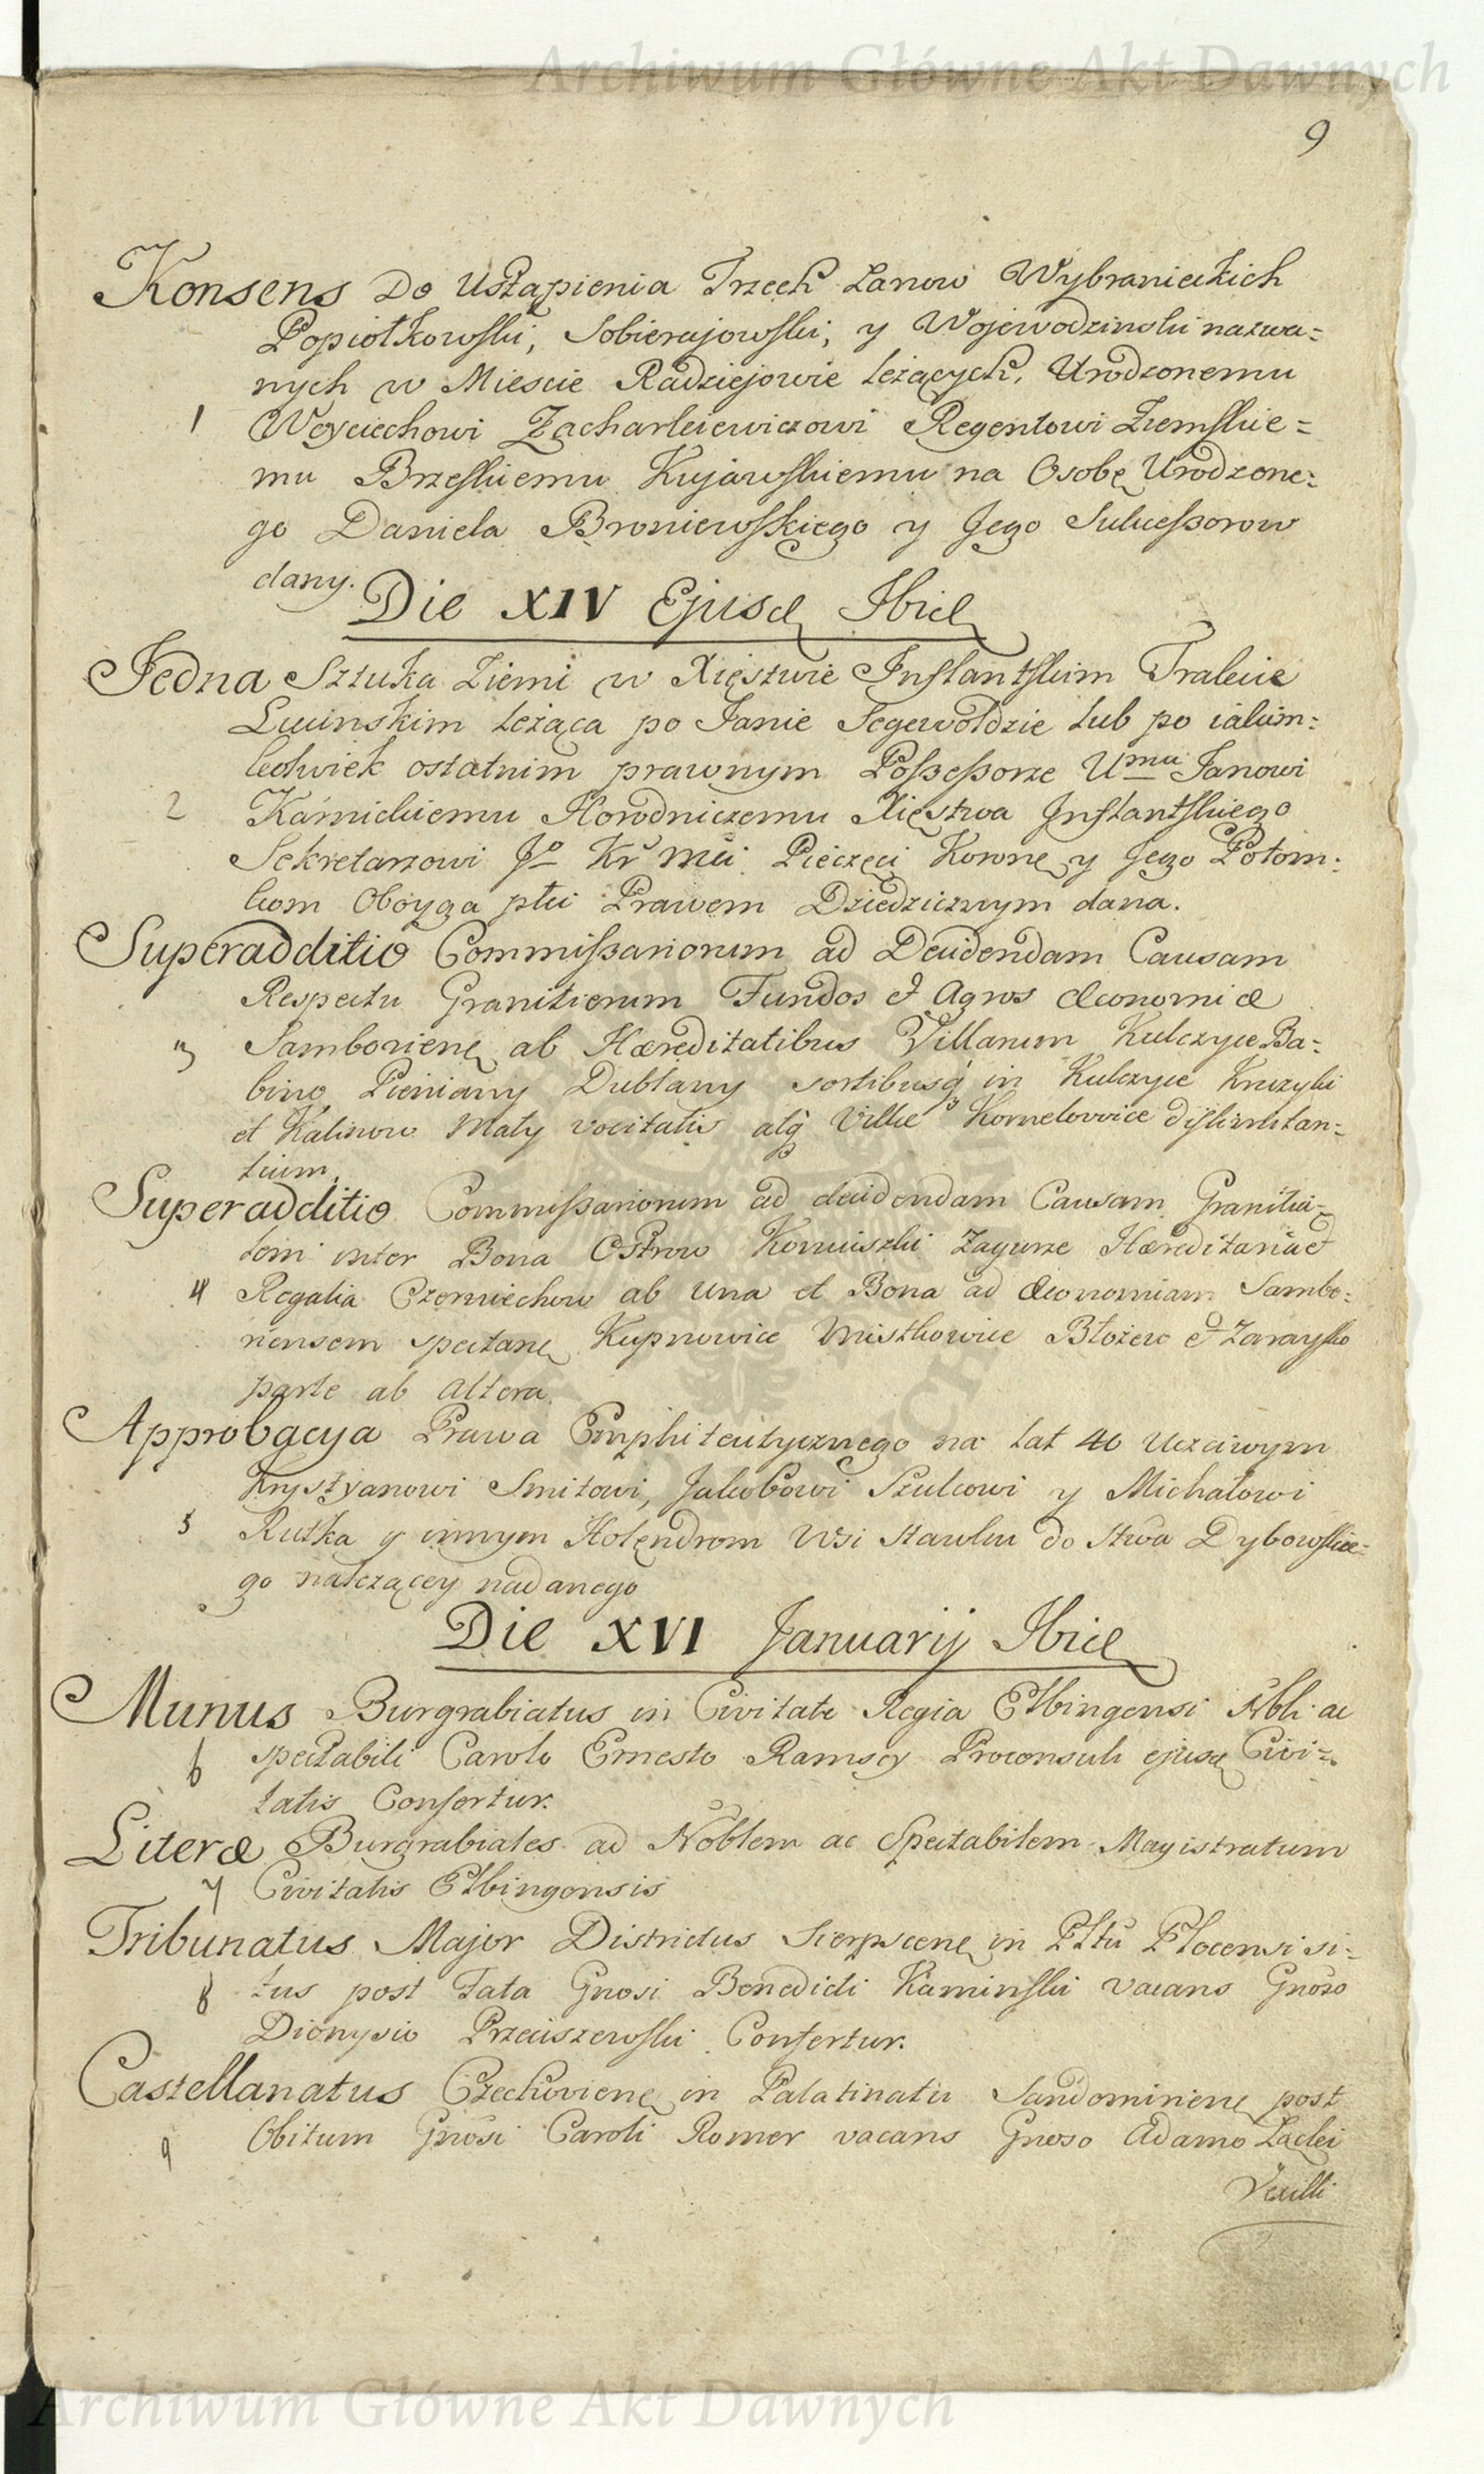 Archiwum Główne Akt Dawnych
9
Konsens Do Ustąpienia Trzech Łanow Wybranieckich
Popiołkowski, Sobierajowski, y Wojewodzinski nazwa=
nych w Miescie Radziejowie leżących, Urodzonemu
1 Woyciechowi Zacharkiewiczowi Regentowi Ziemskie=
mu Brzeskiemu Kujawskiemu na Osobę Urodzone=
go Daniela Broniewskiego y Jego Sukcessorow
dany.
Die XIV Ejusd Ibid
Jedna Sztuka Ziemi w Xięstwie Inflantskim Trakcie
Lucinskim leżąca po Janie Segewoldzie lub po iakim=
kolwiek ostatnim prawnym Possessorze Umu Janowi
2 Karnickiemu Horodniczemu Xięstwa Inflantskiego
Sekretarzowi Jo Kr Mci Pieczęci Koronney y Jego Potom=
kom Oboyga płci Prawem Dziedzicznym dana.
Superadditio Commissariorum ad Decidendam Causam
Respectu Granitierum Fundos et Agros Œconomiæ
3 Samborien ab Hæreditatibus Villarum Kulczyce Ba=
bino Pieniany Dublany sortibusq in Kulczyce Kruzyki
et Kalinow Maly vocitatis atq Villæ Kornelowice dislimitan=
tium.
Superadditio Commissariorum ad decidendam Causam Granitia=
lem inter Bona Ostrow Koniuszki Zagurze Hæreditaria et
4 Regalia Czerniechow ab una et Bona ad Œconomiam Sambo=
riensem spectan Kupnowice Mistkowice Błożew et Zaraysko
parte ab altera.
Approbacya Prawa Emphiteutycznego na lat 40 Uczciwym
Krystyanowi Smitowi, Jakubowi Szulcowi y Michałowi
5 Rutka y innym Holendrom Wsi Stawku do Stwa Dybowskie=
go należącey nadanego
Die XVI Januarij Ibid
Munus Burgrabiatus in Civitate Regia Elbingensi Nbli ac
6 spectabili Carolo Ernesto Ramsey Proconsuli ejusd Civi=
tatis Confertur.
Literæ Burgrabiales ad Noblem ac Spectabilem Magistratum
7 Civitatis Elbingensis
Tribunatus Major Districtus Sierpscen in Plttu Plocensi si=
8 tus post Fata Gnosi Benedicti Kaminski vacans Gnoso
Dionysio Przeciszewski Confertur.
Castellanatus Czechovien in Palatinatu Sandomirien post
9 Obitum Gnosi Caroli Romer vacans Gnoso Adamo Łącki
Vexilli
Archiwum Główne Akt Dawnych